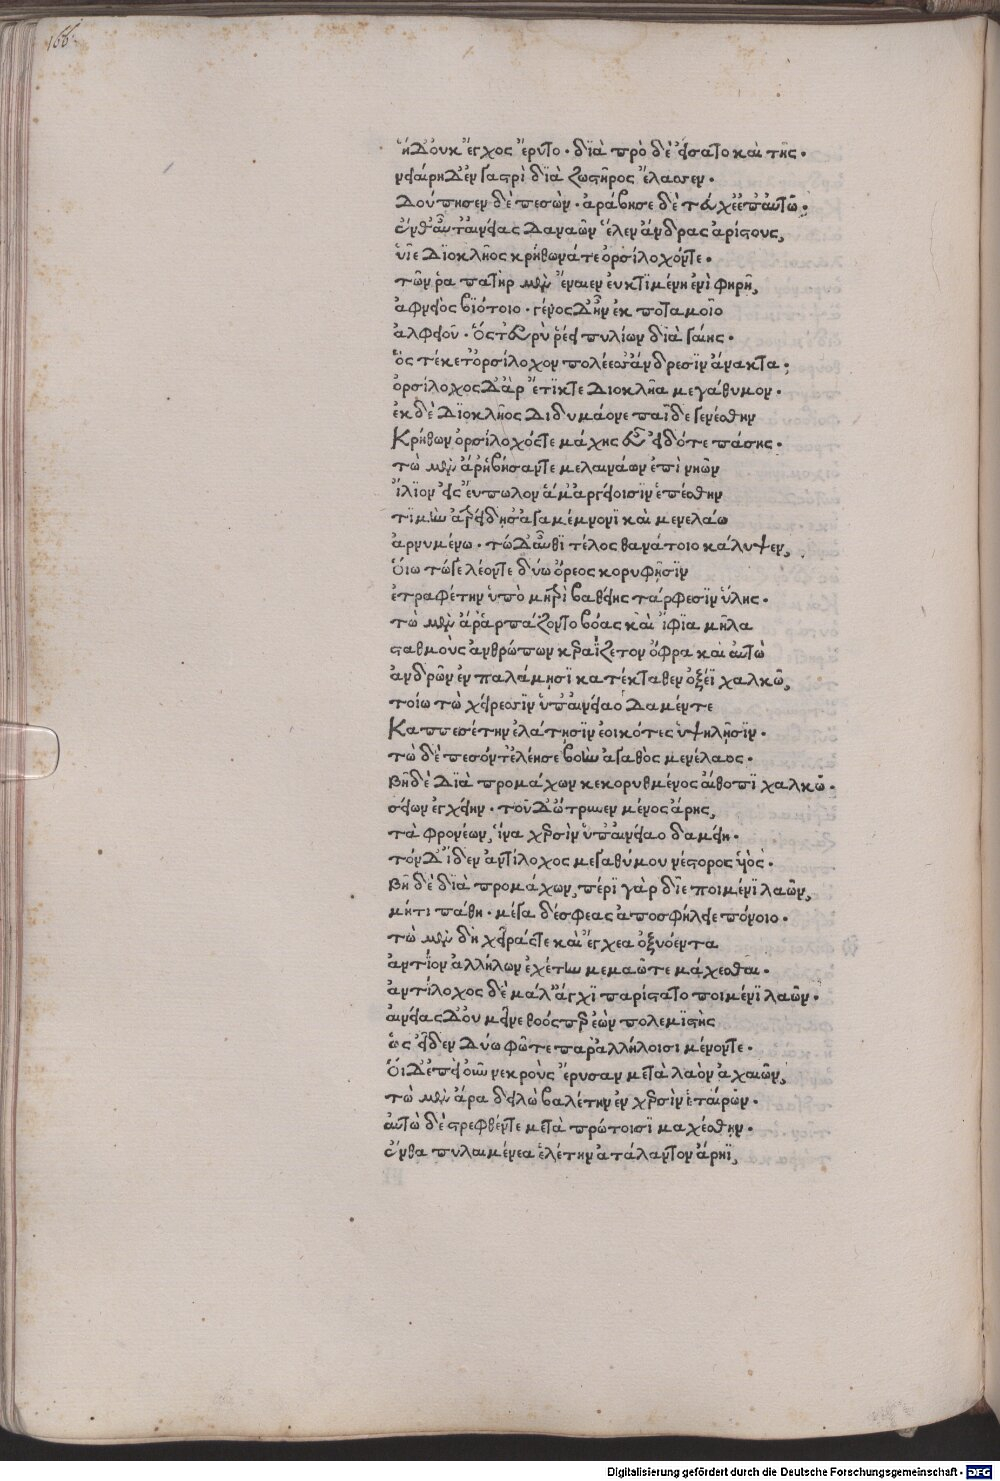 166
ἡ δ' οὐκ ἔγχος ἔρυτο· διὰ πρὸ δὲ εἴσατο καὶ τῆς·
νειαίρη δ' ἐν γαστρὶ διὰ ζωστῆρος ἔλασσεν·
δούπησεν δὲ πεσὼν· ἀράβησε δὲ τεύχε' ἐπ' αὐτῶ·
ἔνθ' αὖτ' αἰνείας δαναῶν ἕλεν ἄνδρας ἀρίστους,
υἷε διοκλῆος κρήθωνά τε ὀρσίλοχόν τε·
τῶν ῥα πατὴρ μὲν ἔναιεν ἐυκτιμένη ἐνὶ φηρῆ,
ἀφνειὸς βιότοιο· γένος δ' ἦν ἐκ ποταμοῖο
ἀλφειοῦ· ὅς τ' εὐρὺ ῥέει πυλίων διὰ γαίης·
ὃς τέκετ' ὀρσίλοχον πολέεσσ' ἄνδρεσιν ἄνακτα·
ὀρσίλοχος δ' ἄρ' ἔτικτε διοκλῆα μεγάθυμον·
ἐκ δὲ διοκλῆος διδυμάονε παῖδε γενέσθην
Κρήθων ὀρσίλοχός τε μάχης εὖ εἰδότε πάσης·
τὼ μὲν ἄρ' ἡβήσαντε μελαινάων ἐπὶ νηῶν
ἴλιον εἰς εὔπωλον ἅμ' ἀργείοισιν ἑπέσθην
τιμὴν ἀτρείδης ἀγαμέμνονι καὶ μενελάω
ἀρνυμένω· τὼ δ' αὖθι τέλος θανάτοιο κάλυψεν,
Οἵω τώγε λέοντε δύω ὄρεος κορυφῆσιν
ἐτραφέτην ὑπὸ μητρὶ βαθείης τάρφεσιν ὕλης·
τὼ μὲν ἄρ' ἁρπάζοντο βόας καὶ ἴφια μῆλα
σταθμοὺς ἀνθρώπων κεραΐζετον ὄφρα καὶ αὐτὼ
ἀνδρῶν ἐν παλάμησι κατέκταθεν ὀξέϊ χαλκῶ,
τοίω τὼ χείρεσσιν ὑπ' αἰνείαο δαμέντε
Καππεσέτην ἐλάτησιν ἐοικότες ὑψηλῆσιν·
τὼ δὲ πεσόντ' ἐλέησε βοὴν ἀγαθὸς μενέλαος·
βῆ δὲ διὰ προμάχων κεκορυθμένος αἴθοπι χαλκῶ·
σείων ἐγχείην· τοῦ δ' ὤτρυνεν μένος ἄρης,
τὰ φρονέων, ἵνα χερσὶν ὑπ' αἰνείαο δαμείη·
τὸν δ' ἴδεν ἀντίλοχος μεγαθύμου νέστορος υἱός·
βῆ δὲ διὰ προμάχων, πέρι γὰρ δῖε ποιμένι λαῶν,
μήτι πάθη· μέγα δέ σφεας ἀποσφήλειε πόνοιο·
τὼ μὲν δὴ χεῖράς τε καὶ ἔγχεα ὀξυόεντα
ἀντίον ἀλλήλων ἐχέτην μεμαῶτε μάχεσθαι·
ἀντίλοχος δὲ μάλ' ἄγχι παρίστατο ποιμένι λαῶν·
αἰνείας δ' οὐ μεῖνε θοός περ ἐὼν πολεμιστὴς
ὡς εἶδεν δύω φῶτε παρ' ἀλλήλοισι μένοντε·
Οἱ δ' ἐπεὶ οὖν νεκροὺς ἔρυσαν μετὰ λαὸν ἀχαιῶν,
τὼ μὲν ἄρα δειλὼ βαλέτην ἐν χερσὶν ἑταίρων·
αὐτὼ δὲ στρεφθέντε μετὰ πρώτοισι μαχέσθην·
ἔνθα πυλαιμένεα ἑλέτην ἀτάλαντον ἄρηϊ,
Digitalisierung gefördert durch die Deutsche Forschungsgemeinschaft - DFG